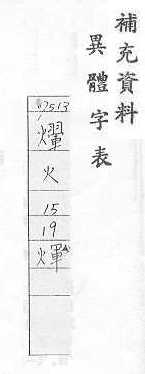 補充資料
異體字表
燿
火
15
19
煇